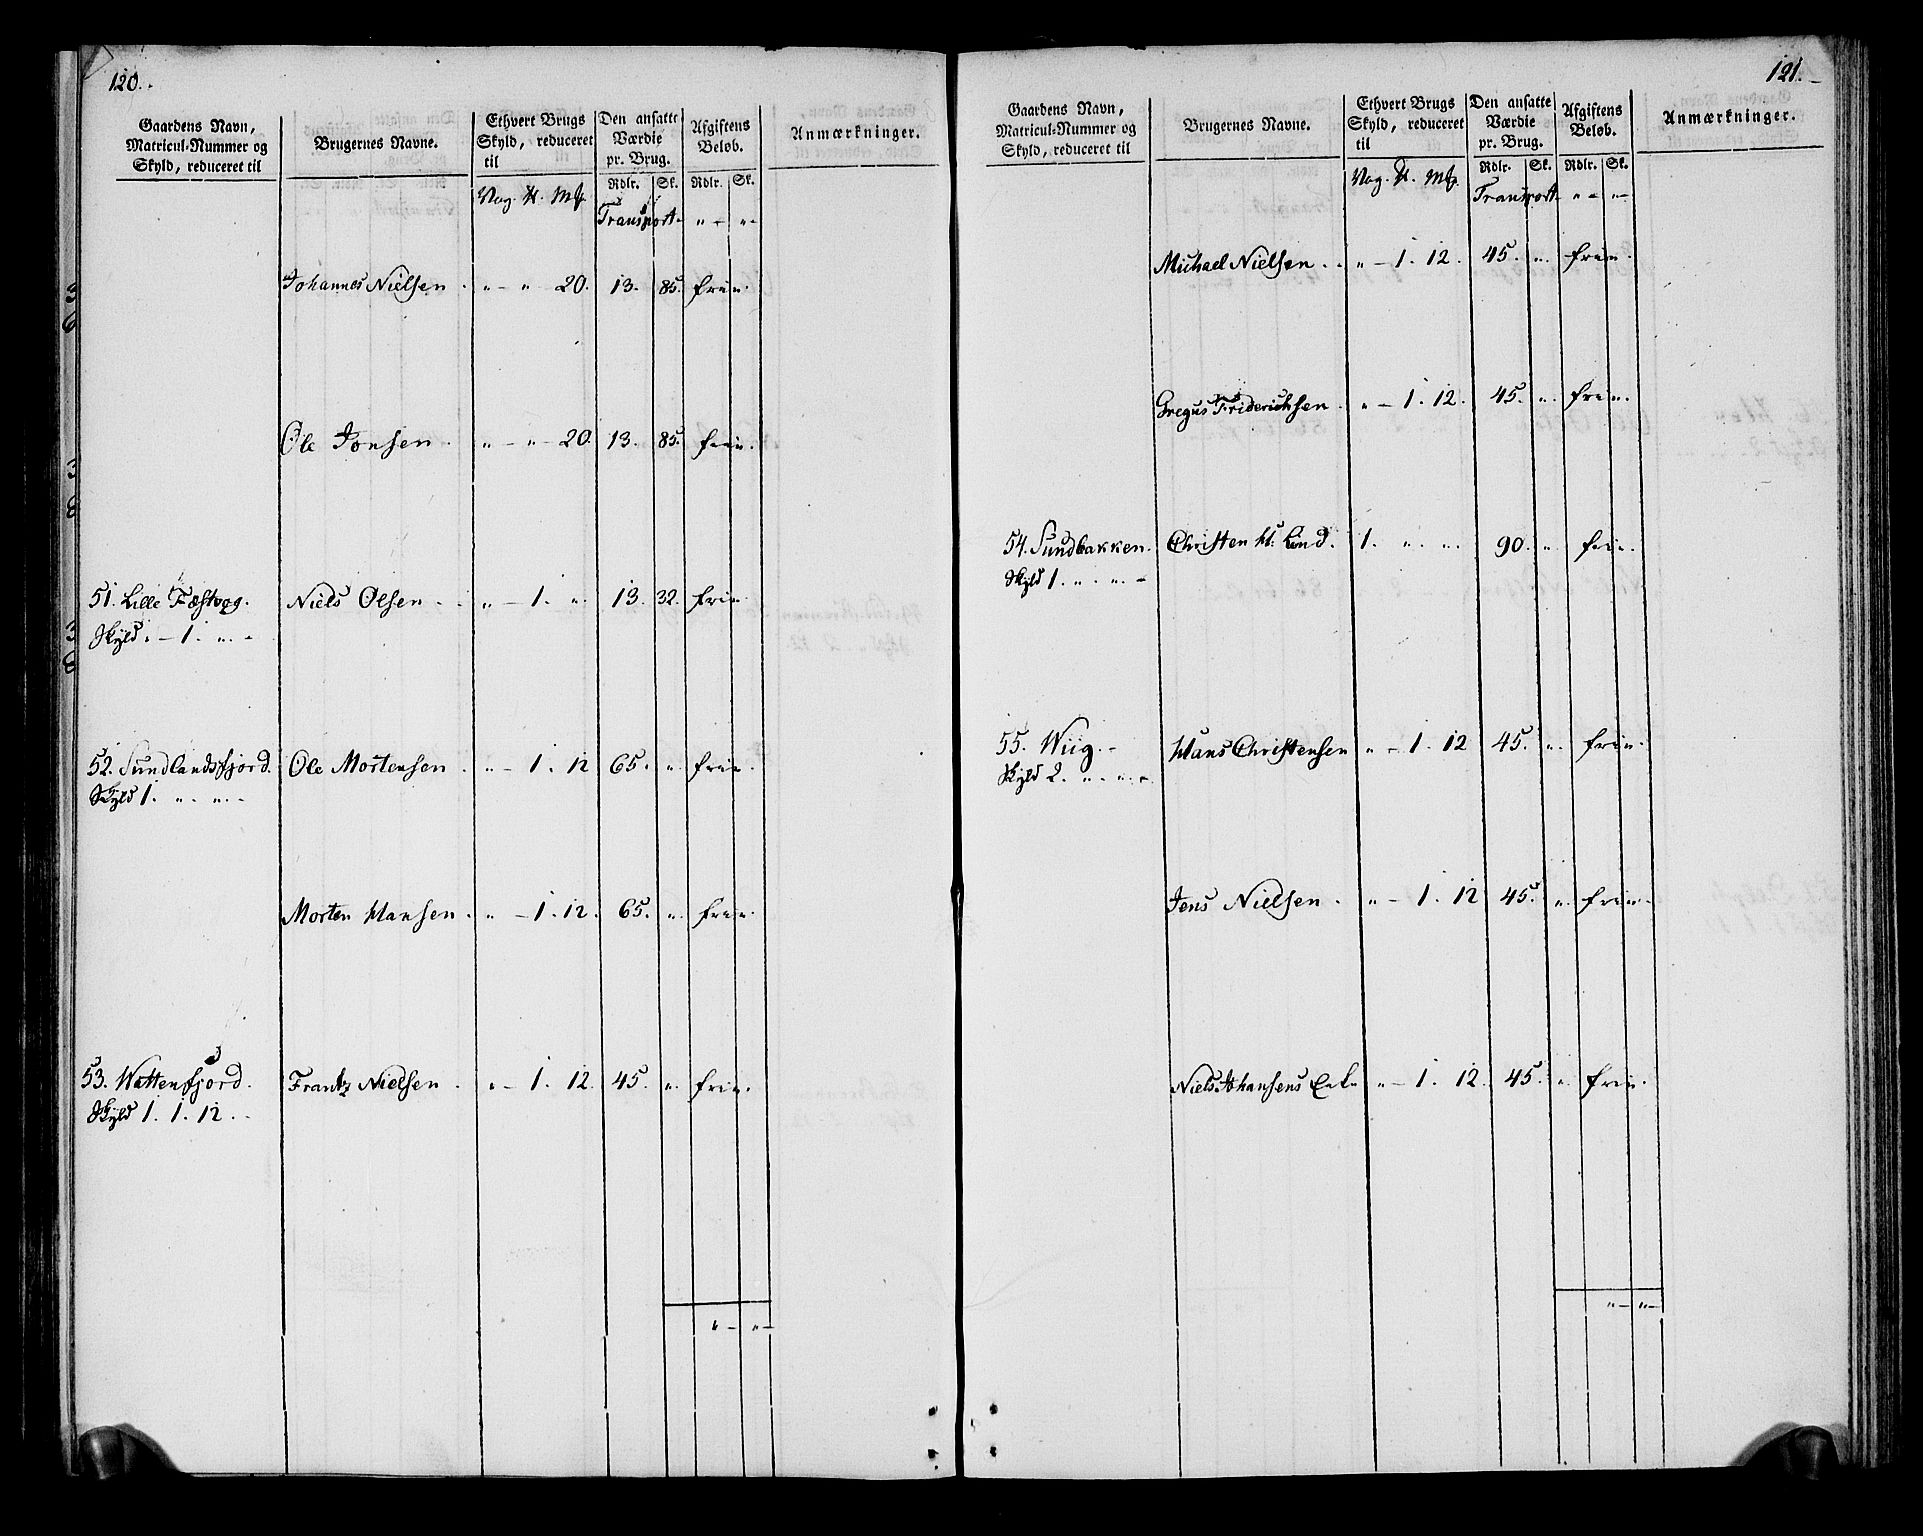 120.
Gaardens Navn, Matricul-Nummer og Skyld, reduceret til
Brugernes Navne.
Ethvert Brugs Skyld, reduceret til
Den ansatte Værdie pr. Brug.
Afgiftens Beløb.
Anmærkninger.
Rdlr. Sk. Rdlr. Sk.
Vog. ℔. Mk.
Transport. " - " -
Johannes Nielsen. " - " 20. 13. 85. frie.
Ole Jonsen. " - " - 20. 13. 85. frie.
51. Lille Fæstvog. Niels Olsen. " - 1. " 13. 32. frie.
Skyld " - 1. " -
52. Sundlandsfjord. Ole Mortensen. " - 1. 12 65. " frie.
Skyld 1. " " -
Morten Hansen. " - 1. 12. 65. " frie.
53. Wattenfjord. Frantz Nielsen. " - 1. 12. 45. " frie.
Skyld 1. 1. 12.
" - " -
121.
Gaardens Navn, Matricul-Nummer og Skyld, reduceret til
Brugernes Navne.
Ethvert Brugs Skyld, reduceret til
Den ansatte Værdie pr. Brug.
Afgiftens Beløb.
Anmærkninger.
Rdlr. Sk. Rdlr. Sk.
Vog. ℔. Mk.
Transport. " - " -
Michael Nielsen. " - 1. 12. 45. " frie.
Gregus Friderichsen. " - 1. 12. 45. " frie.
54. Sundbakken. Christen H. Lind. 1. " " 90. " frie.
Skyld 1. " " -
55. Wiig. Hans Christensen " - 1. 12 45. " frie.
Skyld 2. " " -
Jens Nielsen. " - 1. 12 45. " frie.
Niels Johansens Enke " - 1. 12. 45. " frie.
" - " -